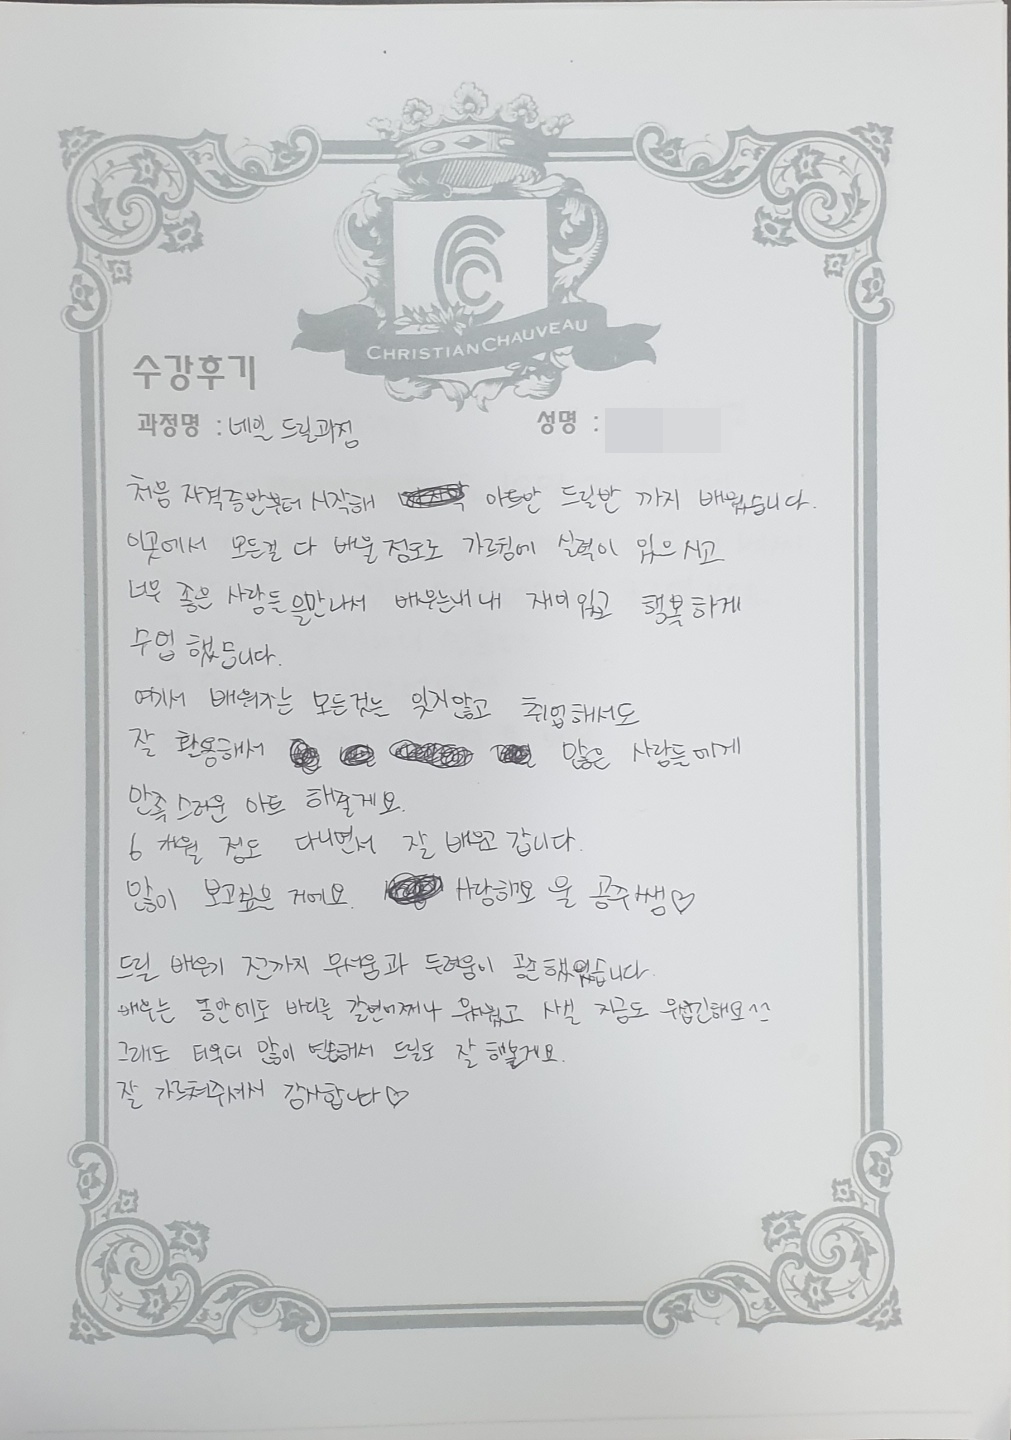 CHRISTIAN CHAUVEAU
수강후기
과정명 : 네일 드릴과정
성명 :
처음 자격증반부터 시작해 아트반 드릴반 까지 배웠습니다.
이곳에서 모든걸 다 배울 정도로 가르침에 실력이 있으시고
너무 좋은 사람들을만나서 배우는내내 재미있고 행복하게
수업 했습니다.
여기서 배워가는 모든것는 잊지않고 취업해서도
잘 활용해서 많은 사람들에게
만족스러운 아트 해줄게요.
6개월 정도 다니면서 잘 배우고 갑니다.
많이 보고싶은 거에요. 사랑해요 울 공주쌤♡
드릴 배우기 전까지 무서움과 두려움이 공존했었습니다.
배우는 동안에도 바디를 갈면어쩌나 무서웠고 사실 지금도 무섭긴해요^^
그래도 더욱더 많이 연습해서 드릴도 잘 해볼게요.
잘 가르쳐주셔서 감사합니다♡